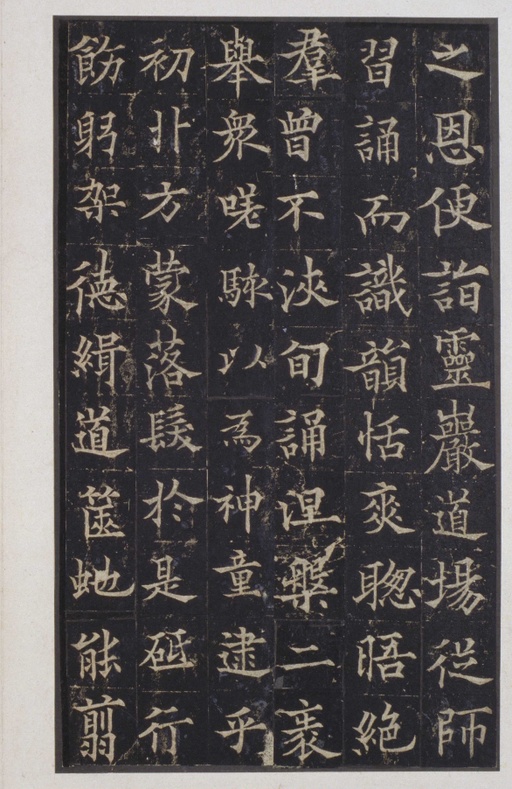 之恩便詣靈巖道場從師
習誦而識韻恬爽聦晤絶
羣曾不浹旬誦涅槃二袠
舉衆嗟駭以為神童逮乎
初丱方蒙落髮於是砥行
飭躬架德緝道篋虵能翦